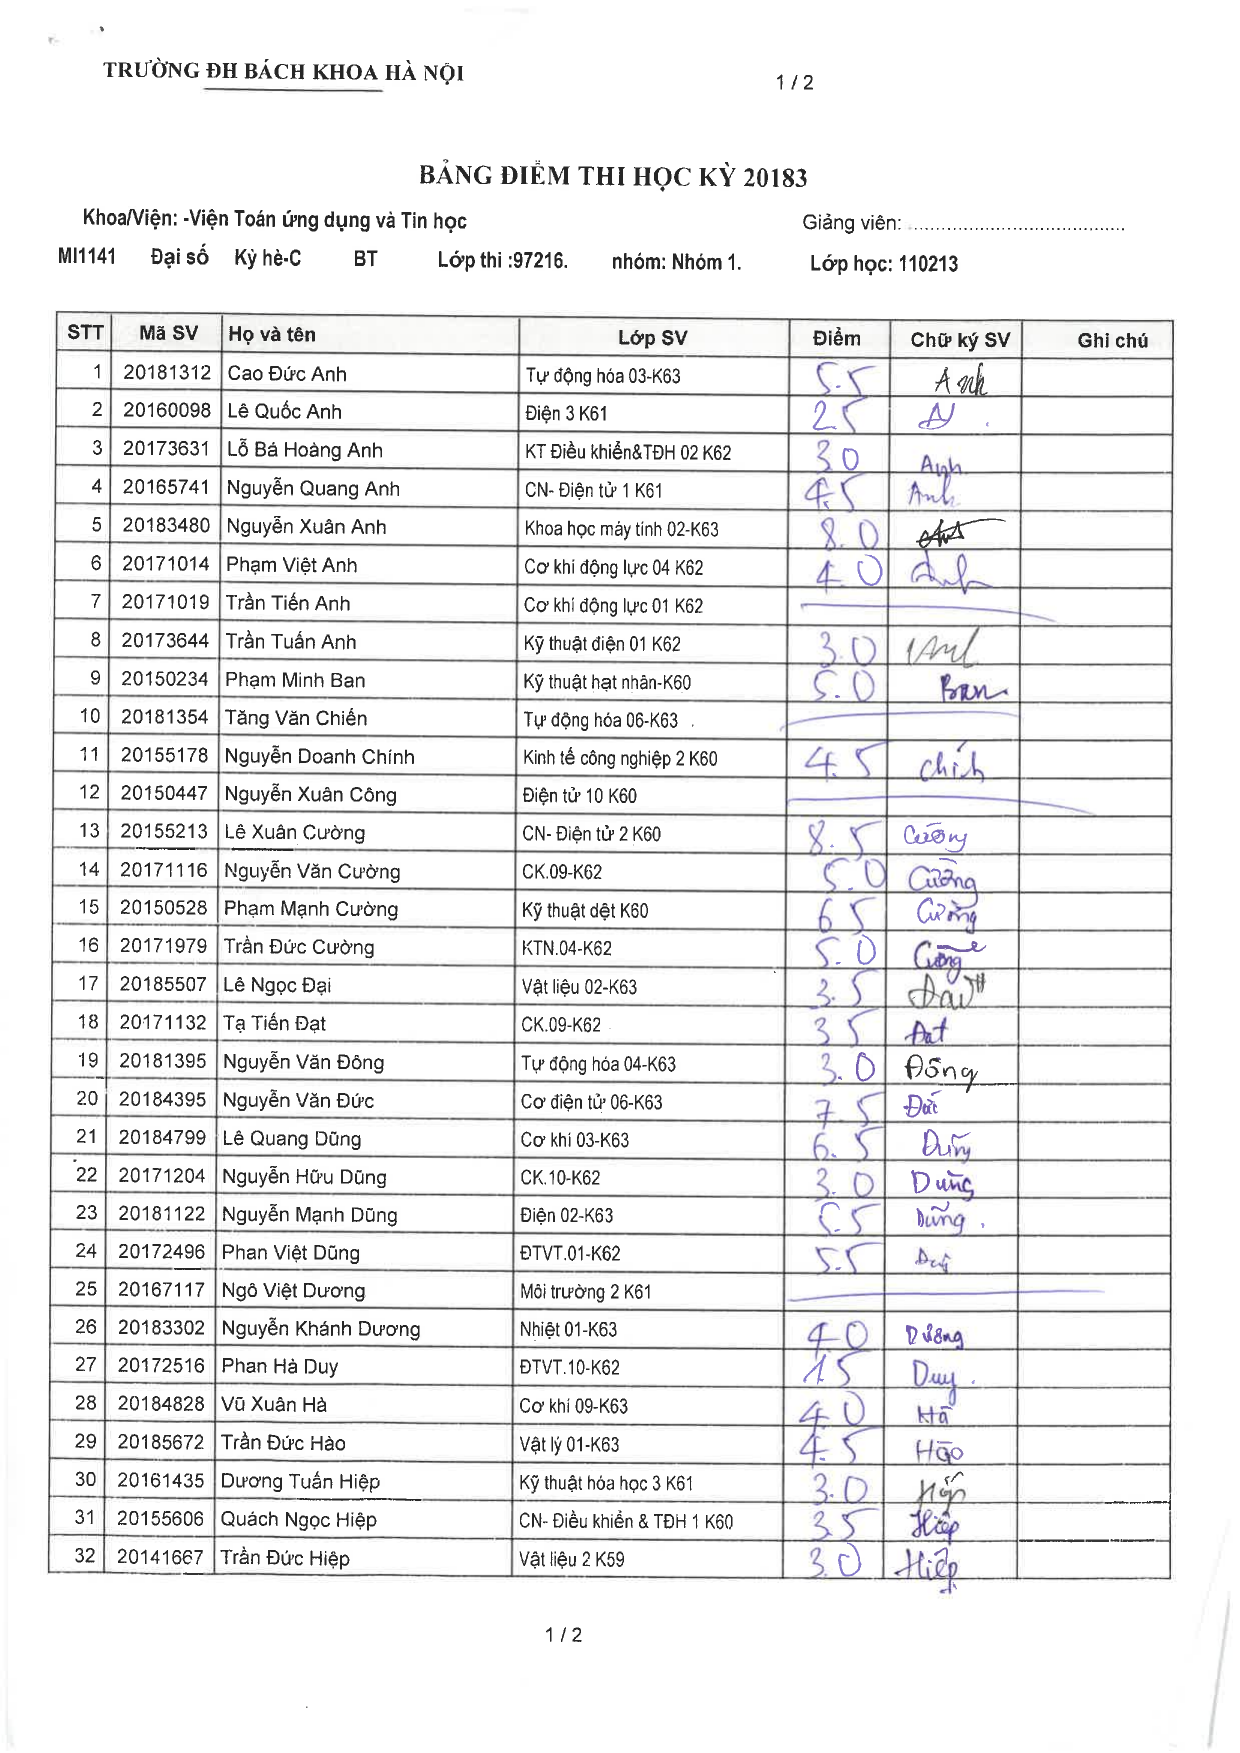 TRƯỜNG ĐH BÁCH KHOA HÀ NỘI
1 / 2
BẢNG ĐIỂM THI HỌC KỲ 20183
Khoa/Viện: -Viện Toán ứng dụng và Tin học Giảng viên: ......................................
MI1141 Đại số Kỳ hè-C BT Lớp thi :97216. nhóm: Nhóm 1. Lớp học: 110213
STT Mã SV Họ và tên Lớp SV Điểm Chữ ký SV Ghi chú
1 20181312 Cao Đức Anh Tự động hóa 03-K63 5.5 Anh
2 20160098 Lê Quốc Anh Điện 3 K61 25
3 20173631 Lỗ Bá Hoàng Anh KT Điều khiển&TĐH 02 K62 30 Anh
4 20165741 Nguyễn Quang Anh CN- Điện tử 1 K61 4.5 Anh
5 20183480 Nguyễn Xuân Anh Khoa học máy tính 02-K63 8.0
6 20171014 Phạm Việt Anh Cơ khí động lực 04 K62 4.0 Anh
7 20171019 Trần Tiến Anh Cơ khí động lực 01 K62
8 20173644 Trần Tuấn Anh Kỹ thuật điện 01 K62 3.0 Anh
9 20150234 Phạm Minh Ban Kỹ thuật hạt nhân-K60 5.0 Ban
10 20181354 Tăng Văn Chiến Tự động hóa 06-K63
11 20155178 Nguyễn Doanh Chính Kinh tế công nghiệp 2 K60 4.5 Chính
12 20150447 Nguyễn Xuân Công Điện tử 10 K60
13 20155213 Lê Xuân Cường CN- Điện tử 2 K60 8.5 Cường
14 20171116 Nguyễn Văn Cường CK.09-K62 5.0 Cường
15 20150528 Phạm Mạnh Cường Kỹ thuật dệt K60 65 Cường
16 20171979 Trần Đức Cường KTN.04-K62 5.0 Cường
17 20185507 Lê Ngọc Đại Vật liệu 02-K63 3.5 Đại
18 20171132 Tạ Tiến Đạt CK.09-K62 35 Đạt
19 20181395 Nguyễn Văn Đông Tự động hóa 04-K63 3.0 Đông
20 20184395 Nguyễn Văn Đức Cơ điện tử 06-K63 7.5 Đức
21 20184799 Lê Quang Dũng Cơ khí 03-K63 6.5 Dũng
22 20171204 Nguyễn Hữu Dũng CK.10-K62 3.0 Dũng
23 20181122 Nguyễn Mạnh Dũng Điện 02-K63 5.5 Dũng
24 20172496 Phan Việt Dũng ĐTVT.01-K62 5.5
25 20167117 Ngô Việt Dương Môi trường 2 K61
26 20183302 Nguyễn Khánh Dương Nhiệt 01-K63 40 Dương
27 20172516 Phan Hà Duy ĐTVT.10-K62 15 Duy
28 20184828 Vũ Xuân Hà Cơ khí 09-K63 4.0 Hà
29 20185672 Trần Đức Hào Vật lý 01-K63 4.5 Hào
30 20161435 Dương Tuấn Hiệp Kỹ thuật hóa học 3 K61 3.0
31 20155606 Quách Ngọc Hiệp CN- Điều khiển & TĐH 1 K60 35 Hiệp
32 20141667 Trần Đức Hiệp Vật liệu 2 K59 3.0 Hiệp
1 / 2